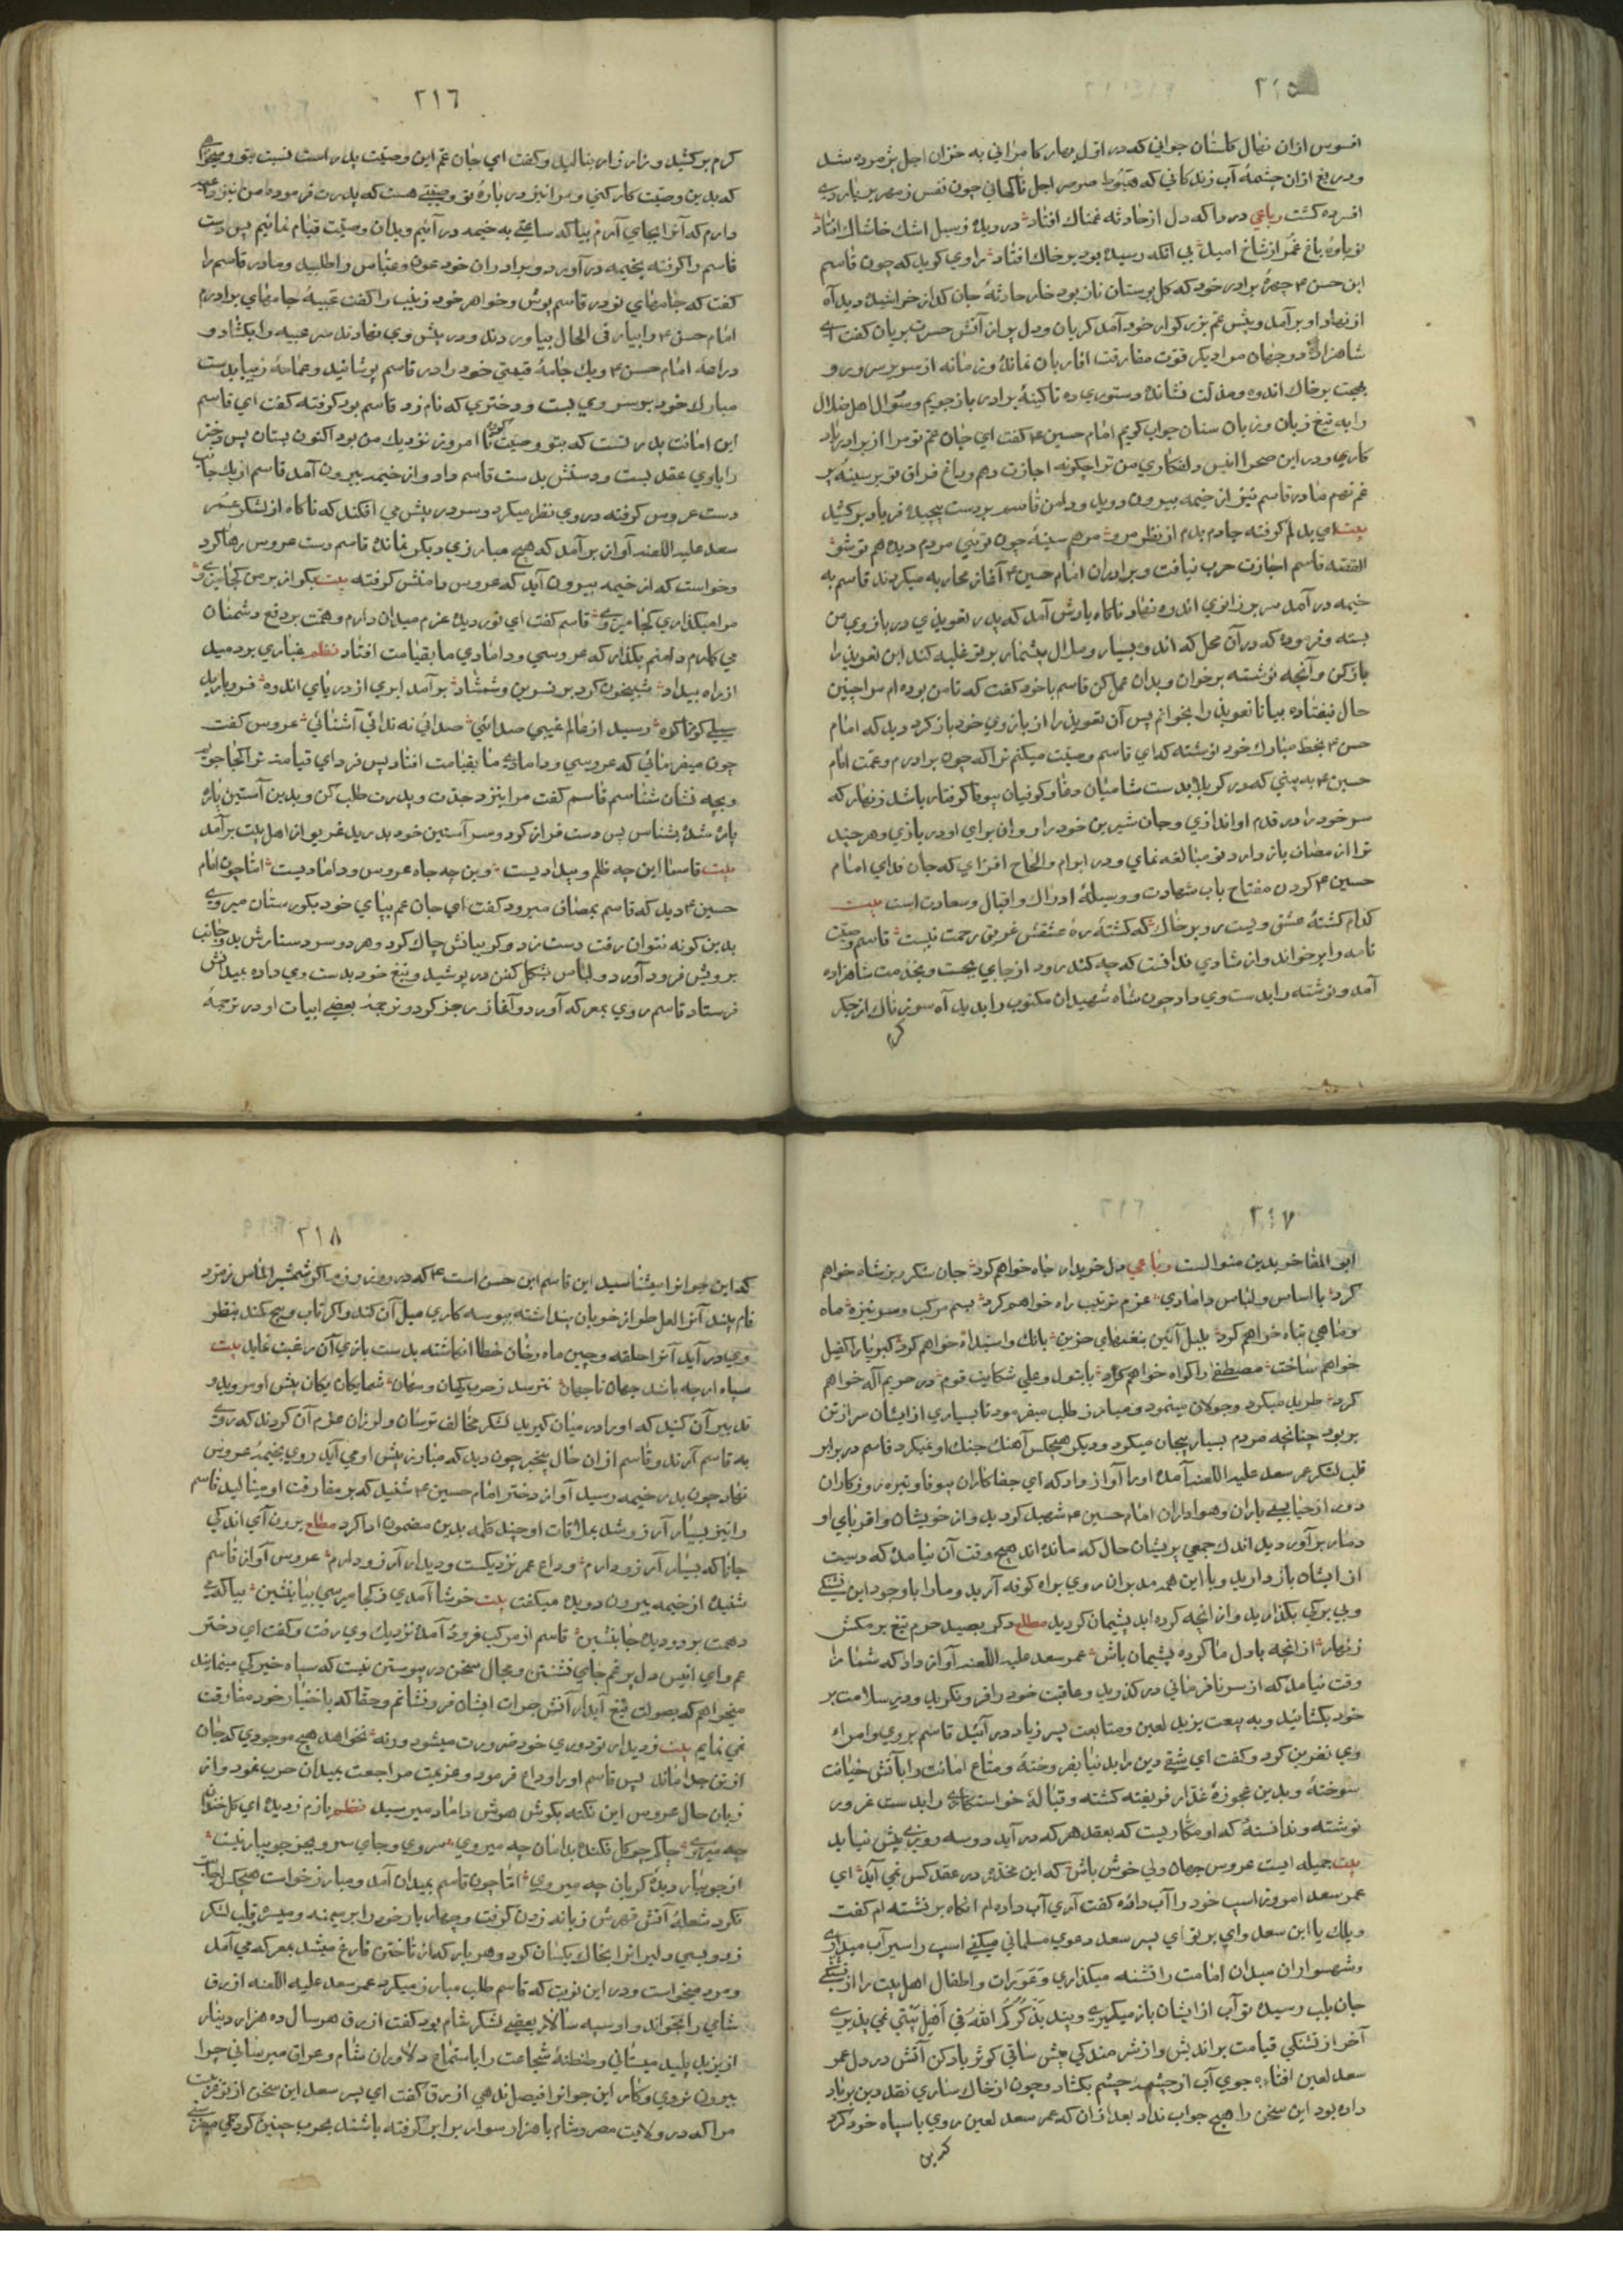 ٢١٥
افسوس ازان نهال کلستان جواني که در اول بهار کامراني به خزان اجل پژمرده شد
ودریغ ازان چشمهٔ آب زندکاني که هبوط صرصر اجل ناکهاني چون نفس زمهریر
افسرده کشت رباعي دردا که دل از حادثه غمناك افتاد در دیده ز سیل اشك خاشاك افتاد
نوباوهٔ باغ عمر از شاخ امید بي انکه رسیده بود بر خاك افتاد راوي کوید که چون قاسم
ابن حسن ۴ چهرهٔ برادر خود که کل بوستان ناز بود خار حادثهٔ جان کداز خراشیده دید آه
از نهاد او برآمد وپیش عم بزرکوار خود آمد کریان ودل پر از آتش حسرت بریان کفت اي
شاهزادهٔ دو جهان مرا دیکر قوت مفارقت اقاربان نمانده وزمانه از سریر سرور و
بهجت بر خاك اندوه ومذلت نشانده دستوري ده تا کینهٔ برادر بازجویم وسوال اهل ضلال
را به تیغ زبان وزبان سنان جواب کویم امام حسین ۴ کفت اي جان عم تو مرا از برادر یاد
کاري ودر این صحرا انیس دلفکاري من ترا چکونه اجازت دهم وداغ فراق تو بر سینهٔ پر
غم نهم مادر قاسم نیز از خیمه بیرون دوید ودامن قاسم بر دست پیچیده فریاد برکشید
بیت اي بدلم کرفته جا دم بدم از نظر مرو مرهم سینه چون توئي مردم دیده هم تو شو
القصه قاسم اجازت حرب نیافت وبرادران امام حسین ۴ آغاز محاربه میکردند قاسم به
خیمه در آمد سر بر زانوي اندوه نهاد ناکاه یادش آمد که پدر تعویذي در بازوي من
بسته وفرموده که در آن محل که اندوه بسیار وملال بیشمار بر تو غلبه کند این تعویذ را
بازکن وآنچه نوشته بر خوان وبدان عمل کن قاسم با خود کفت که تا من بوده ام مرا چنین
حال نیفتاده بیا تا تعویذ را بخوانم پس آن تعویذ را از بازوي خود باز کرد دید که امام
حسن ۴ بخط مبارك خود نوشته که اي قاسم وصیت میکنم ترا که چون برادرم وعمت امام
حسین ۴ به بیني که در کربلا بدست شامیان دغا وکوفیان بیوفا کرفتار باشد زنهار که
سر خود را در قدم او اندازي وجان شیرین خود را روان براي او در بازي وهر چند
ترا از مصاف باز دارد تو مبالغه نماي ودر ابرام والحاح افزاي که جان فداي امام
حسین ۴ کردن مفتاح باب شهادت ووسیلهٔ ادراك واقبال وسعادت است بیت
کدام کشتهٔ عشق ویست رو بر خاك که کشتهٔ ره عشقش غریق رحمت نیست قاسم وصیت
نامه را برخواند واز شادي ندانست که چه کند زود از جاي بجست وبخدمت شاهزاده
آمد ونوشته را بدست وي داد چون شاه شهیدان مکتوب را بدید آه سوزناك از جکر
کرم
٢١٦
کرم برکشید وزار زار بنالید وکفت اي جان عم این وصیت پدر است نسبت بتو ومیخواهي
که بدین وصیت کار کني ومرا نیز در بارهٔ تو وصیتي هست که پدرت فرموده من نیز داعیه
دارم که آنرا بجاي آرم بیا که ساعتي به خیمه در آئیم وبدان وصیت قیام نمائیم پس دست
قاسم را کرفته بخیمه در آورد وبرادران خود عون وعباس را طلبید ومادر قاسم را
کفت که جامهاي نو در قاسم پوش وخواهر خود زینب را کفت عیبهٔ جامهاي برادرم
امام حسن ۴ را بیار في الحال بیاوردند ودر پیش وي نهادند سر عیبه را بکشاد و
دراعهٔ امام حسن ۴ ویك جامهٔ قیمتي خود را در قاسم پوشانید وعمامهٔ زیبا بدست
مبارك خود بر سر وي بست ودختري که نام زد قاسم بود کرفته کفت اي قاسم
این امانت پدر تست که بتو وصیت کرده تا امروز نزدیك من بود اکنون بستان پس دختر
را با وي عقد بست ودستش بدست قاسم داد واز خیمه بیرون آمد قاسم از یك جانب
دست عروس کرفته در وي نظر میکرد وسر در پیش مي افکند که ناکاه از لشکر عمر
سعد علیه اللعنه آواز بر آمد که هیچ مبارزي دیکر نمانده قاسم دست عروس رها کرد
وخواست که از خیمه بیرون آید که عروس دامنش کرفته بیت بکو از بر من کجا میروي
مرا میکذاري کجا میروي قاسم کفت اي نور دیده عزم میدان دارم وهمت بر دفع دشمنان
مي کمارم دامنم بکذار که عروسي ودامادي ما بقیامت افتاد نظم غباري بر دمید
از راه بیداد شبیخون کرد بر نسرین وشمشاد برآمد ابري از دریاي اندوه فرو بارید
سیلي کوه تا کوه رسید از عالم غیبي صدائي صدائي نه نداي آشنائي عروس کفت
چون میفرمائي که عروسي ودامادي ما بقیامت افتاد پس فرداي قیامت ترا کجا جویم
وبچه نشان شناسم قاسم کفت مرا بنزد جدت وپدرت طلب کن وبدین آستین پاره
پاره شده بشناس پس دست فراز کرد وسر آستین خود بدرید غریو از اهل بیت برآمد
بیت قاسما این چه ظلم وبیدادیست وین چه جاه عروس ودامادیست اما چون امام
حسین ۴ دید که قاسم بمصاف میرود کفت اي جان عم بپاي خود بکورستان میروي
بدین کونه نتوان رفت دست زد وکریبانش چاك کرد وهر دو سر دستارش بدو جانب
برویش فرود آورد ولباس بشکل کفن در پوشید وتیغ خود بدست وي داده بمیدانش
فرستاد قاسم روي بمعرکه آورد وآغاز رجز کرد وترجمهٔ بعضي ابیات او در ترجمهٔ
٢١٧
ابو المفاخر بدین منوالست رباعي دل خریدار جاه خواهم کرد جان سکرریز شاه خواهم
کرد با اساس ولباس دامادي عزم ترتیب راه خواهم کرد بسم مرکب وسر نیزه ماه
وماهي تباه خواهم کرد بلبل آئین بنغمهاي حزین بانك وا سیداه خواهم کرد کبریا را کفیل
خواهم ساخت مصطفی را کواه خواهم کرد با بتول وعلي شکایت قوم در حریم آله خواهم
کرد طرید میکرد وجولان مینمود ومبارز طلب میفرمود تا بسیاري از ایشان سر از تن
بربود چنانچه مردم بسیار بیجان میکرد ودیکر هیچکس آهنك جنك او نمیکرد قاسم در برابر
قلب لشکر عمر سعد علیه اللعنه آمده اورا آواز داد که اي جفاکاران بیوفا وتیره روزکاران
دور از حیا بسي یاران وهواداران امام حسین ۴ شهید کردید واز خویشان واقرباي او
دمار بر آوردید اندك جمعي پریشان حال که مانده اند هیچ وقت آن نیامده که دست
از ایشان باز دارید وبا این همه مدبران روي براه کوفه آرید ومارا با وجود این تشنکي
وبي برکي بکذارید واز انچه کرده اید پشیمان کردید مطلع دکر بصید حرم تیغ بر مکش
زنهار از انچه با دل ما کرده پشیمان باش عمر سعد علیه اللعنه آواز داد که شما را
وقت نیامد که از سر نافرماني در کذرید وعاقبت خود را فرو نکرید ودر سلامت بر
خود بکشائید وبه بیعت یزید لعین ومتابعت پسر زیاد در آئید قاسم بر وي وامراء
وي نفرین کرد وکفت اي شقي دین را بدنیا بفروخته ومتاع امانت را بآتش خیانت
سوخته وبدین عجوزهٔ غدار فریفته کشته وقبالهٔ خواستکاري را بدست غرور
نوشته وندانسته که او مکاریست که بعقد هر که در آید دو سه روزي بیش نپاید
بیت جمیله ایست عروس جهان ولي خوش باش که این مخدره در عقد کس نمي آید اي
عمر سعد امروز اسپ خود را آب دادهٔ کفت آري آب داده ام انکاه بر نشسته ام کفت
ویلك یا ابن سعد واي بر تو اي پسر سعد دعوي مسلماني میکني اسپ را سیر آب میداري
وشهسواران میدان امامت را تشنه میکذاري وعورات واطفال اهل بیت را از تشنکي
جان بلب رسیده تو آب از ایشان باز میکیري وپند یذکرکم الله في اهل بیتي نمي پذیري
آخر از تشنکي قیامت بر اندیش واز شرمندکي پیش ساقي کوثر یاد کن آتش در دل عمر
سعد لعین افتاده جوي آب از چشمهٔ چشم بکشاد وچون از خاکساري نقد دین بر باد
داده بود این سخن را هیچ جواب نداد بعد ازان که عمر سعد لعین روي با سپاه خود کرد
که این
٢١٨
که این جوانرا میشناسید این قاسم ابن حسن است ۴ که در روز رزم اکر شمشیر الماس زمرد
فام بیند آنرا لعل طراز خوبان پنداشته ببوسه کاري میل آن کند واکر تاب وپیچ کمند بنظر
وي در آید آنرا حلقه وچین ماه رخان خطا انکاشته بدست بازي آن رغبت نماید بیت
سپاه ارچه باشد جهان تا جهان نترسد ز حرب کهان ومهان شما یکان یکان پیش او مروید
تدبیر آن کنید که اورا در میان کیرید لشکر مخالف ترسان ولرزان عزم آن کردند که روي
به قاسم آرند وقاسم ازان حال بیخبر چون دید که مبارز پیش او نمي آید روي بخیمهٔ عروس
نهاد چون بدر خیمه رسید آواز دختر امام حسین ۴ شنید که بر مفارقت او مینالید قاسم
را نیز بسیار آرزو شد بملاقات او چند کلمه بدین مضمون ادا کرد مطلع برون آي اندکي
جانا که بسیار آرزو دارم وداع عمر نزدیکست ودیدار آرزو دارم عروس آواز قاسم
شنیده از خیمه بیرون دوید ومیکفت بیت خوشا آمدي ز کجا میرسي بیا بنشین بیا که
دهمت بر دو دیده جا بنشین قاسم از مرکب فرود آمده نزدیك وي رفت وکفت اي دختر
عم واي انیس دل پر غم جاي نشستن ومجال سخن در پیوستن نیست که سپاه خیرکي مینمایند
میخواهم که بصولت تیغ آبدار آتش جرات ایشان فرو نشانم وحقا که باختیار خود مفارقت
نمي نمایم بیت ز دیدار تو دوري خود ضرورت میشود ورنه نخواهد هیچ موجودي که جان
از تن جدا ماند پس قاسم اورا وداع فرمود وعزیمت مراجعت بمیدان حرب نمود واز
زبان حال عروس این نکته بکوش هوش داماد میرسید نظم بازم ز دیده اي کل خندان
چه میروي چاکم چو کل فکنده بدامان چه میروي سروي وجاي سرو بجز جویبار نیست
از جویبار دیدهٔ کریان چه میروي اما چون قاسم بمیدان آمد ومبارز خواست هیچکس اجابت
نکرد شعلهٔ آتش قهرش زبانه زدن کرفت وچهار بار خود را بر میمنه ومیسره وقلب لشکر
زد وبسي دلیر انرا بخاك یکسان کرد وهر بار که از تاختن فارغ میشد بمعرکه مي آمد
ومرد میخواست ودر این نوبت که قاسم طلب مبارز میکرد عمر سعد علیه اللعنه ازرق
شامي را بخواند واو سپه سالار بعضي لشکر شام بود کفت ازرق هر سال ده هزار دینار
از یزید پلید میستاني وطنطنهٔ شجاعت را باستماع دلاوران شام وعراق میرساني چرا
بیرون نروي وکار این جوانرا فیصل ندهي ازرق کفت اي پسر سعد این سخن از تو غریبست
مرا که در ولایت مصر وشام با هزار سوار برابر کرفته باشند بحرب چنین کودکي میفرستي